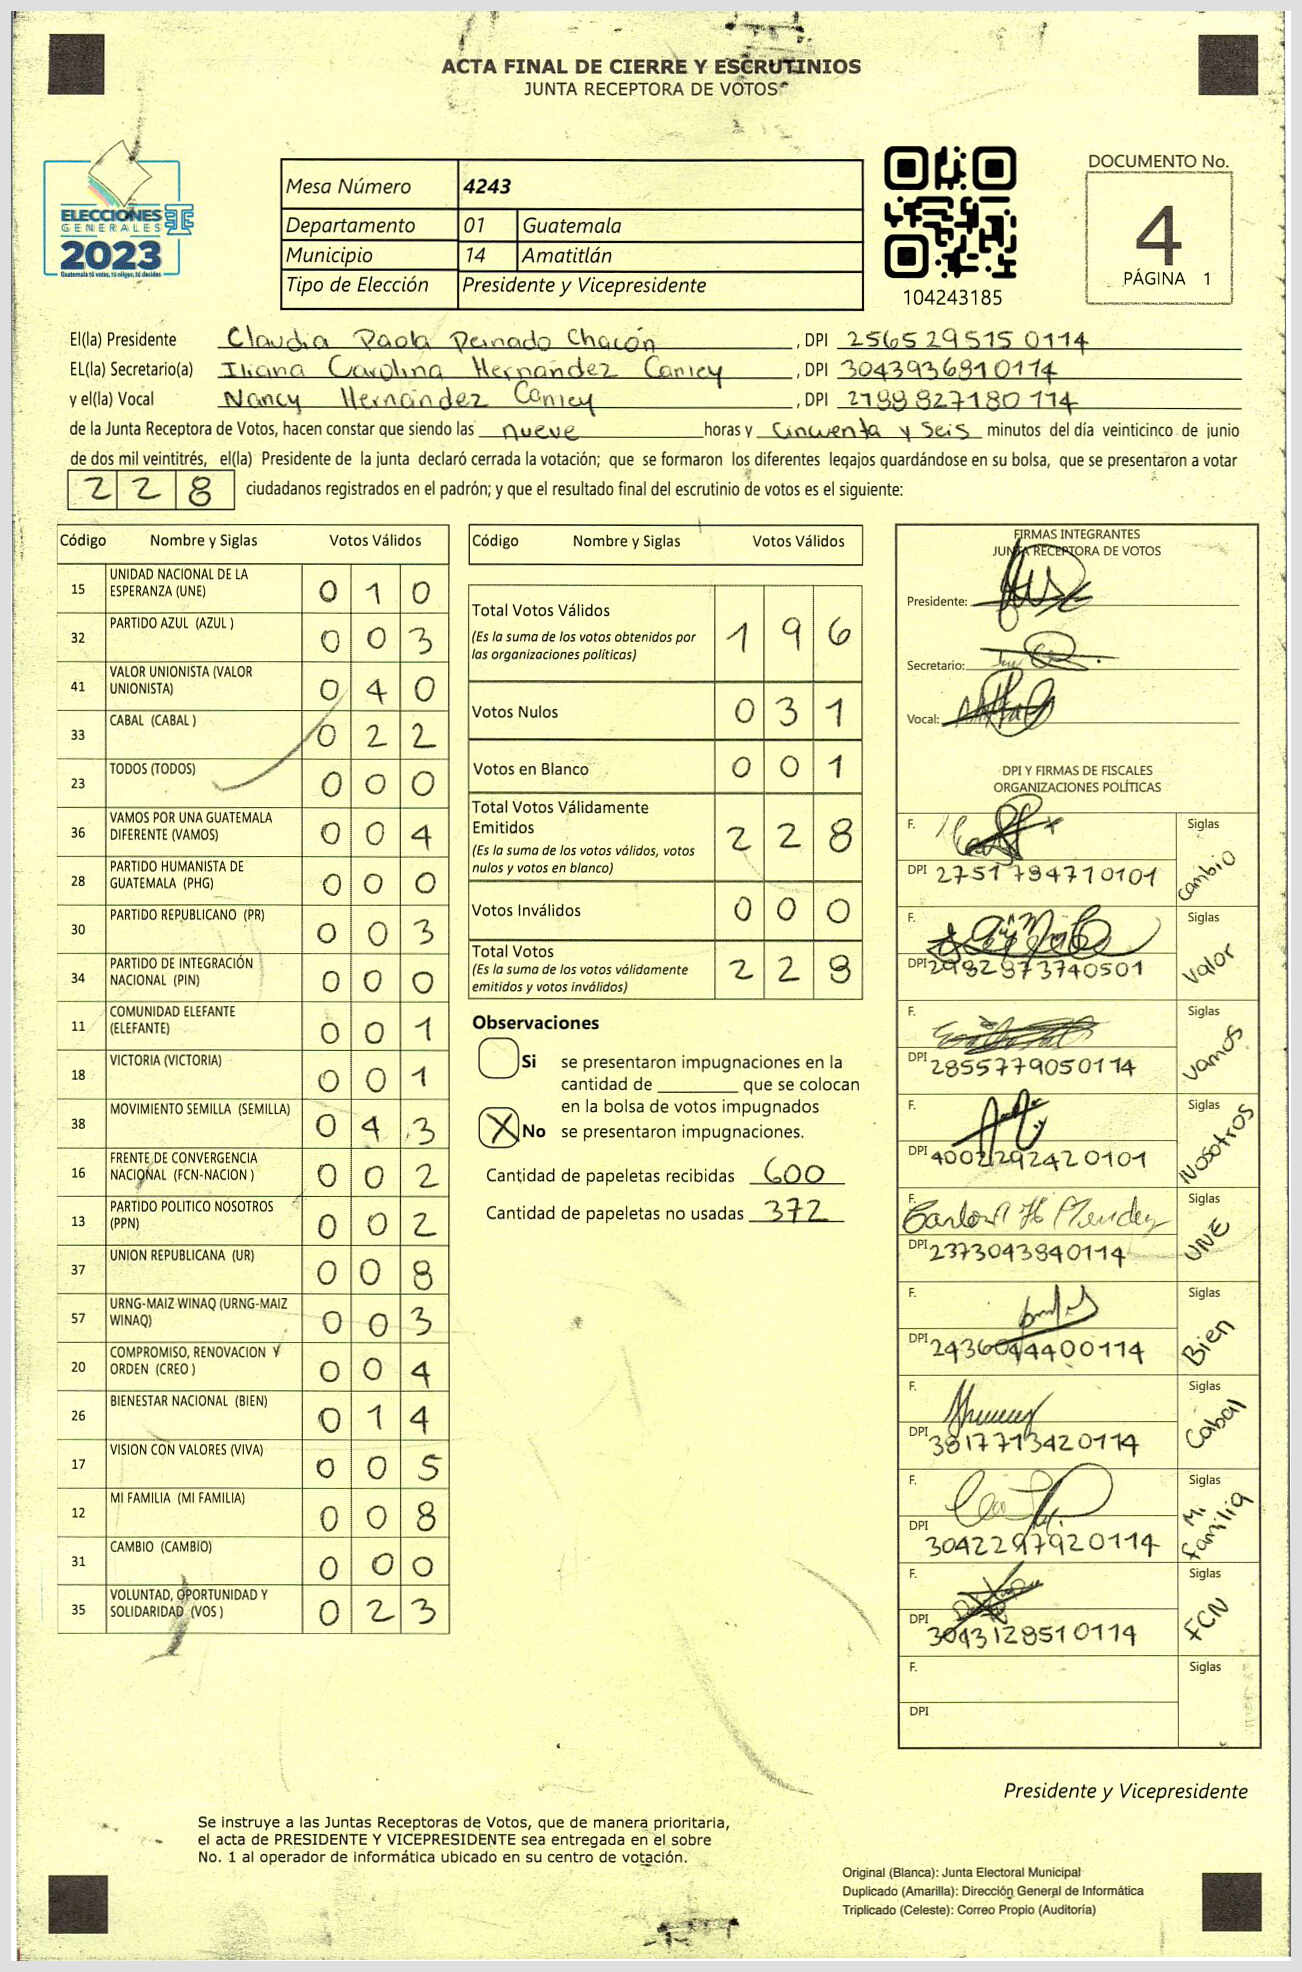 ACTA FINAL DE CIERRE Y ESCRUTINIOS
JUNTA RECEPTORA DE VOTOS
ELECCIONES
GENERALES
2023
Guatemala tú votas, tú eliges, tú decides
Mesa Número 4243
Departamento 01 Guatemala
Municipio 14 Amatitlán
Tipo de Elección Presidente y Vicepresidente
104243185
DOCUMENTO No.
4
PÁGINA 1
El(la) Presidente Claudia Paola Peinado Chacón, DPI 2565295150114
EL(la) Secretario(a) Iliana Carolina Hernández Caniey, DPI 3043936810114
y el(la) Vocal Nancy Hernández Caniey, DPI 2188827180114
de la Junta Receptora de Votos, hacen constar que siendo las nueve horas y cincuenta y seis minutos del día veinticinco de junio
de dos mil veintitrés, el(la) Presidente de la junta declaró cerrada la votación; que se formaron los diferentes legajos guardándose en su bolsa, que se presentaron a votar
228 ciudadanos registrados en el padrón; y que el resultado final del escrutinio de votos es el siguiente:
Código Nombre y Siglas Votos Válidos
15 UNIDAD NACIONAL DE LA ESPERANZA (UNE) 0 1 0
32 PARTIDO AZUL (AZUL ) 0 0 3
41 VALOR UNIONISTA (VALOR UNIONISTA) 0 4 0
33 CABAL (CABAL ) 0 2 2
23 TODOS (TODOS) 0 0 0
36 VAMOS POR UNA GUATEMALA DIFERENTE (VAMOS) 0 0 4
28 PARTIDO HUMANISTA DE GUATEMALA (PHG) 0 0 0
30 PARTIDO REPUBLICANO (PR) 0 0 3
34 PARTIDO DE INTEGRACIÓN NACIONAL (PIN) 0 0 0
11 COMUNIDAD ELEFANTE (ELEFANTE) 0 0 1
18 VICTORIA (VICTORIA) 0 0 1
38 MOVIMIENTO SEMILLA (SEMILLA) 0 4 3
16 FRENTE DE CONVERGENCIA NACIONAL (FCN-NACION ) 0 0 2
13 PARTIDO POLITICO NOSOTROS (PPN) 0 0 2
37 UNION REPUBLICANA (UR) 0 0 8
57 URNG-MAIZ WINAQ (URNG-MAIZ WINAQ) 0 0 3
20 COMPROMISO, RENOVACION Y ORDEN (CREO ) 0 0 4
26 BIENESTAR NACIONAL (BIEN) 0 1 4
17 VISION CON VALORES (VIVA) 0 0 5
12 MI FAMILIA (MI FAMILIA) 0 0 8
31 CAMBIO (CAMBIO) 0 0 0
35 VOLUNTAD, OPORTUNIDAD Y SOLIDARIDAD (VOS ) 0 2 3
Código Nombre y Siglas Votos Válidos
Total Votos Válidos 1 9 6
(Es la suma de los votos obtenidos por
las organizaciones políticas)
Votos Nulos 0 3 1
Votos en Blanco 0 0 1
Total Votos Válidamente
Emitidos 2 2 8
(Es la suma de los votos válidos, votos
nulos y votos en blanco)
Votos Inválidos 0 0 0
Total Votos 2 2 8
(Es la suma de los votos válidamente
emitidos y votos inválidos)
Observaciones
Si se presentaron impugnaciones en la
cantidad de ________ que se colocan
en la bolsa de votos impugnados
X No se presentaron impugnaciones.
Cantidad de papeletas recibidas 600
Cantidad de papeletas no usadas 372
FIRMAS INTEGRANTES
JUNTA RECEPTORA DE VOTOS
Presidente:
Secretario:
Vocal:
DPI Y FIRMAS DE FISCALES
ORGANIZACIONES POLÍTICAS
F. Siglas
DPI 2751784710101 Cambio
F. Siglas
DPI 2982873740501 Valor
F. Siglas
DPI 2855779050114 Vamos
F. Siglas
DPI 4002292420101 Nosotros
F. Siglas
DPI 2373043840114 UNE
F. Siglas
DPI 2436044400114 Bien
F. Siglas
DPI 3817713420114 Cabal
F. Siglas
DPI 3042297920114 Mi familia
F. Siglas
DPI 3043128510114 FCN
F. Siglas
DPI
Presidente y Vicepresidente
Se instruye a las Juntas Receptoras de Votos, que de manera prioritaria,
el acta de PRESIDENTE Y VICEPRESIDENTE sea entregada en el sobre
No. 1 al operador de informática ubicado en su centro de votación.
Original (Blanca): Junta Electoral Municipal
Duplicado (Amarilla): Dirección General de Informática
Triplicado (Celeste): Correo Propio (Auditoría)